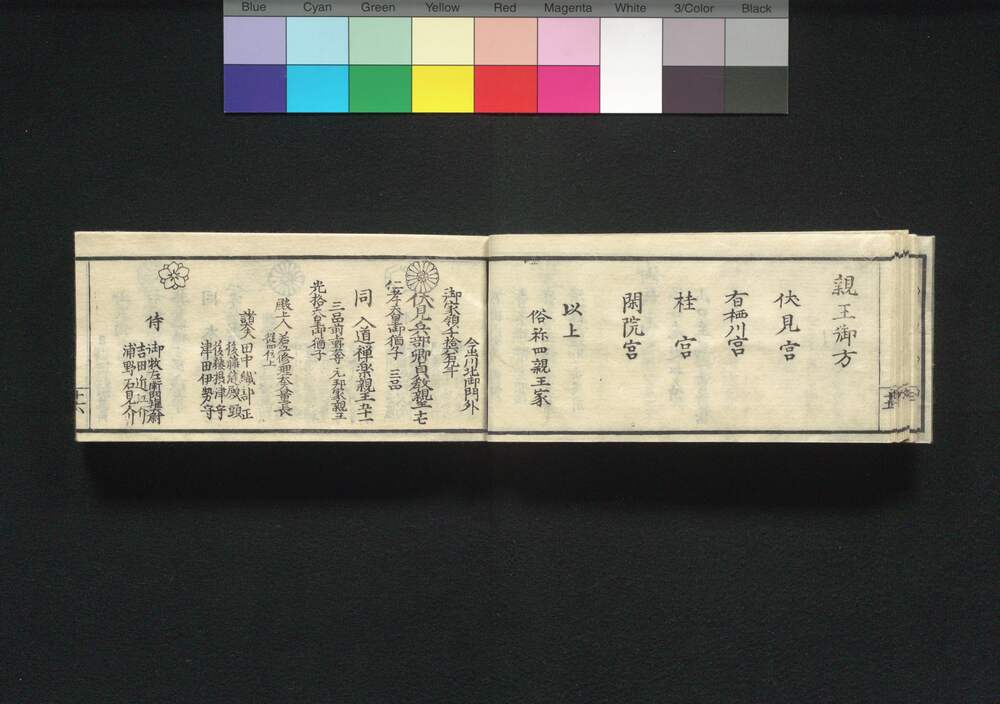 Blue Cyan Green Yellow Red Magenta White 3/Color Black
親王御方
伏見宮
有栖川宮
桂宮
閑院宮
以上
俗称四親王家
今出川北御門外
御家領千
伏見兵部卿貞教親王 十七
仁孝天皇御猶子 三品
同入道禅楽親王 五十一
三品前 元邦家親王
光格天皇御猶子
殿上人 若江修理大夫量長
諸大夫 田中織部正
後藤 頭
後藤摂津守
津田伊勢守
侍 御牧左衛門大尉
吉田近江介
浦野石見介